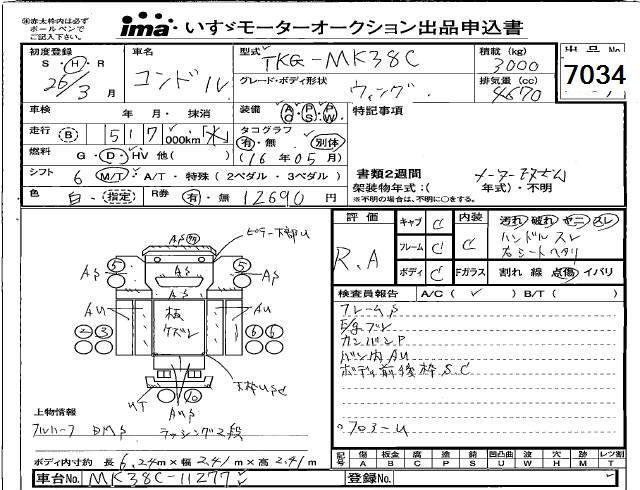 ※赤太枠内は必ず
ボールペンで
ご記入下さい。
ima いすゞモーターオークション出品申込書
初度登録 S・H・R 26/3 月
車名 コンドル
型式 TKG-MK38C
グレード・ボディ形状 ウィング
積載 (kg) 3000
排気量 (cc) 4670
出品No
7034
車検 年・月・抹消
装備 AC PS PW
特記事項
走行 B 517,000km
タコグラフ 有・無 別体
燃料 G・D・HV 他( )
(16年05月)
シフト 6 M/T・A/T・特殊(2ペダル・3ペダル)
書類2週間
架装物年式:( 年式)・不明
※不明の場合は、不明に○をする。
色 白・指定 R券 有・無 12690円
評価 R.A
キャブ C
フレーム C
ボディ C
内装 C
汚れ 破れ ヤニ スレ
ハンドルスレ
Fガラス 割れ 線 点傷 イバリ
検査員報告 A/C(✓) B/T( )
フレームS
カンバンP
バン内AU
ボディ前後枠S.C
フロアーU
AS
AS
AS
AS
AS
AU
AU
板
ケズレ
下枠
上物情報
ラッシング2段
ボディ内寸約 長6.24m×幅2.41m×高2.41m
記号 傷A 板金B 腐C 塗P 錆S 凹凸曲U 波W 穴H 跡M レツ割T
車台No. MK38C-11277
登録No.